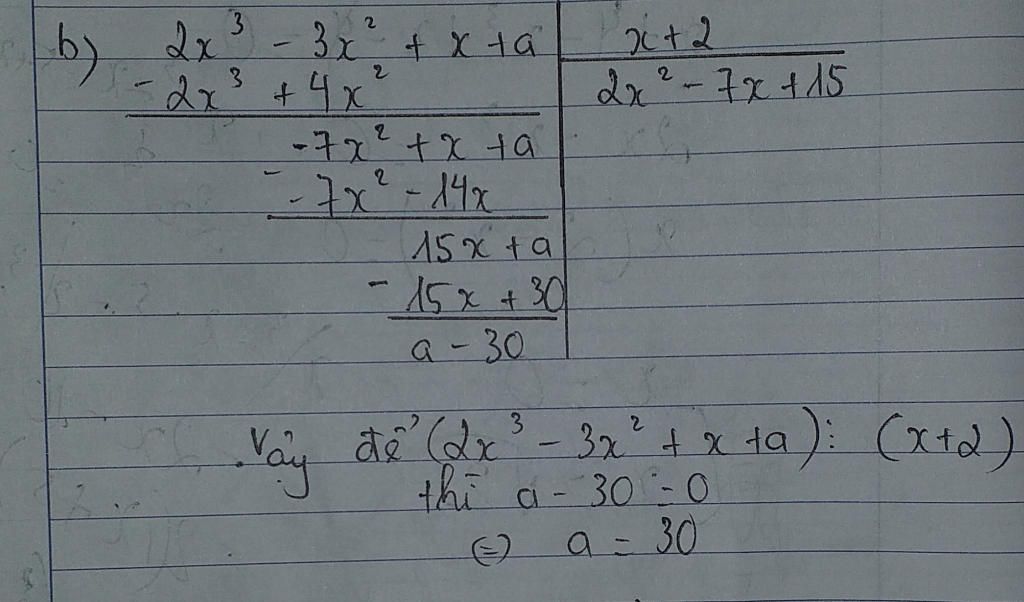 b) 2x³ - 3x² + x + a | x + 2
- 2x³ + 4x² | 2x² - 7x + 15
-7x² + x + a
- -7x² - 14x
15x + a
- 15x + 30
a - 30
Vậy để (2x³ - 3x² + x + a) ⋮ (x+2)
thì a - 30 = 0
⇔ a = 30